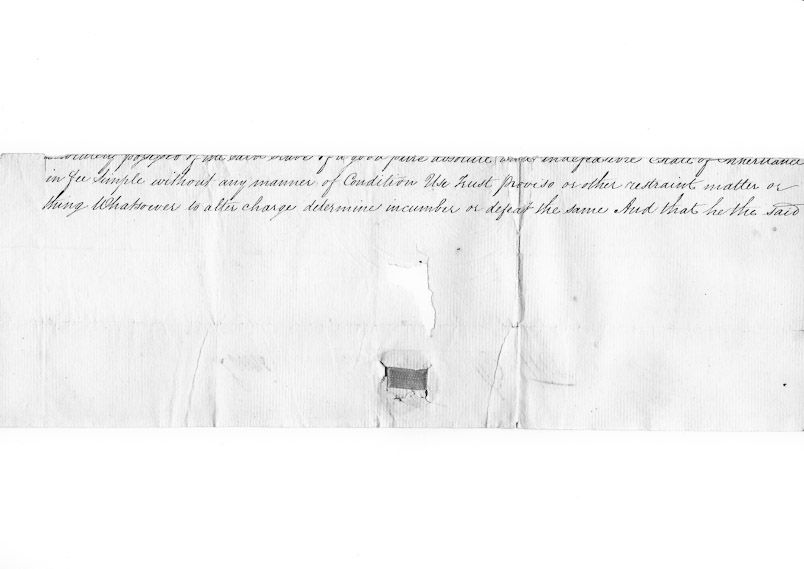 possessed of the said of a good pure absolute and indefeasible Estate of Inheritance
in fee Simple without any manner of Condition Use Trust Proviso or other restraint matter or
thing Whatsoever to alter charge determine incumber or defeat the same And that he the said